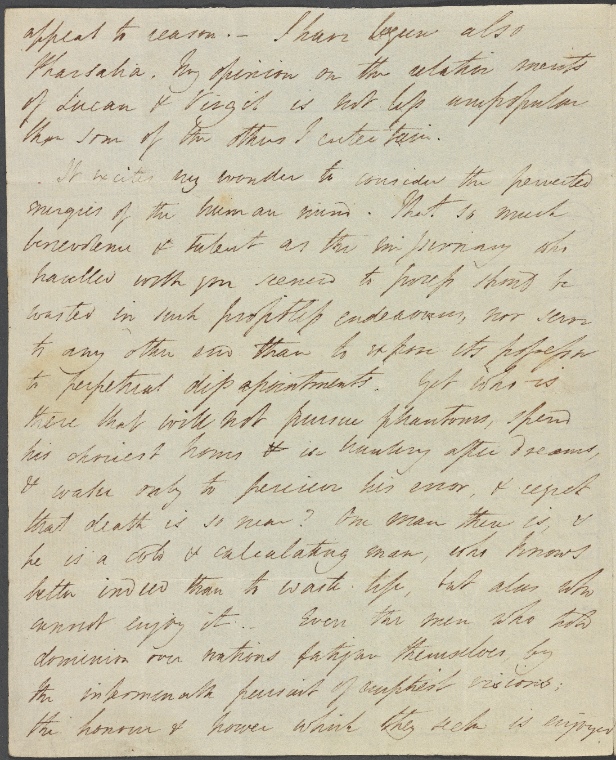 appeal to reason. — I have begun also
Pharsalia. My opinion on the relative merits
of Lucan & Virgil is not less unpopular
than some of the others I entertain.
It excites my wonder to consider the perverted
energies of the human mind. That so much
benevolence & talent as the missionary who
travelled with you seemed to possess should be
wasted in such profitless endeavours, nor serve
to any other end than to expose its possessor
to perpetual disappointments. Yet who is
there that will not pursue phantoms, spend
his choicest hours in hunting after dreams,
& wake only to perceive his error, & regret
that death is so near? One man there is, &
he is a cold & calculating man, who knows
better indeed than to waste life, but alas who
cannot enjoy it. — Even the men who hold
dominion over nations fatigue themselves by
the interminable pursuit of emptiest visions;
the honour & power which they seek is enjoyed